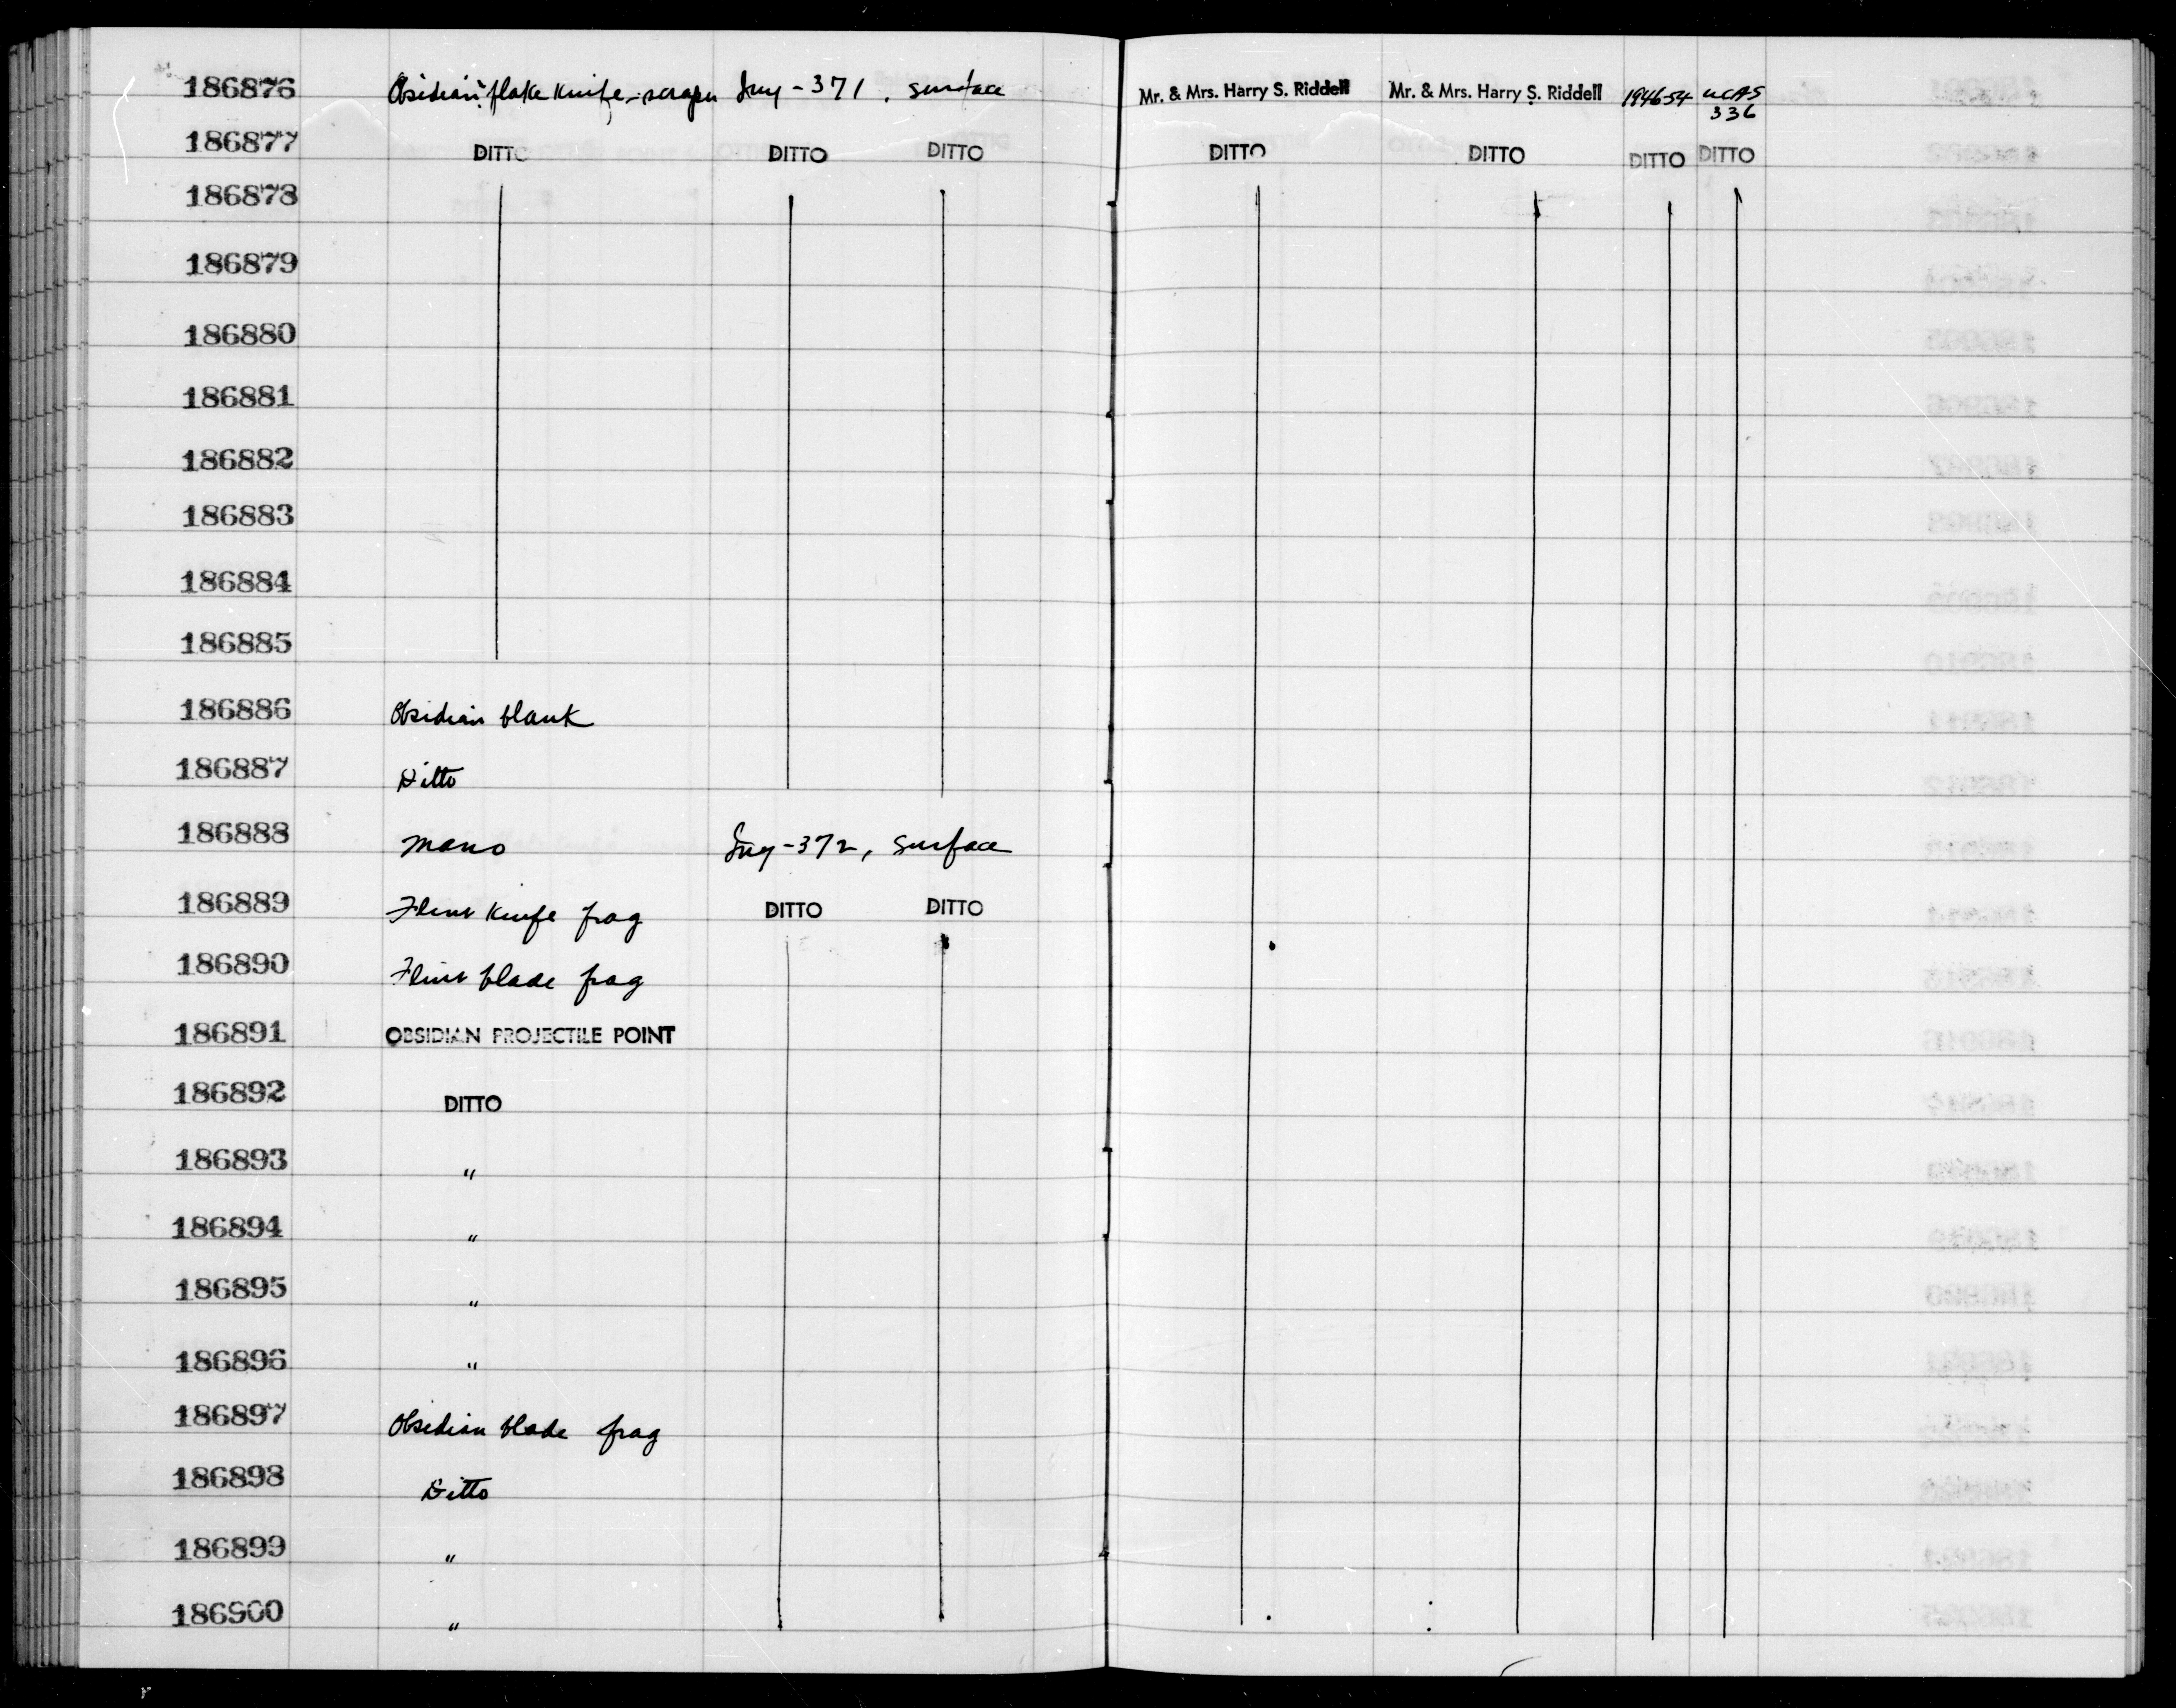 186876 Obsidian flake knife-scraper Iny-371, surface Mr. & Mrs. Harry S. Riddell Mr. & Mrs. Harry S. Riddell 194654 UCAS
336
186877 DITTO DITTO DITTO DITTO DITTO DITTO DITTO
186878
186879
186880
186881
186882
186883
186884
186885
186886 Obsidian blank
186887 Ditto
186888 Mano Iny-372, surface
186889 Flint knife frag DITTO DITTO
186890 Flint blade frag
186891 OBSIDIAN PROJECTILE POINT
186892 DITTO
186893 "
186894 "
186895 "
186896 "
186897 Obsidian blade frag
186898 Ditto
186899 "
186900 "